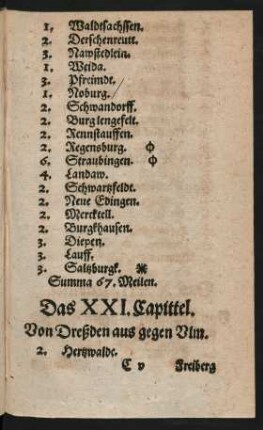 1. Waldsachssen.
2. Derschenreutt.
3. Nawstedlein.
1. Weida.
3. Pfreimdt.
1. Noburg.
2. Schwandorff.
2. Burglengefelt.
2. Rennstauffen.
2. Regensburg. ϕ
6. Straubingen. ϕ
4. Landaw.
2. Schwartzfeldt.
2. Neue Edingen.
2. Mercktell.
2. Burgkhausen.
3. Diepen.
3. Lauff.
3. Saltzburgk. ✱
Summa 67. Meilen.
Das XXI. Capittel.
Von Dreßden aus gegen Vlm.
2. Hertzwalde.
C v Freiberg